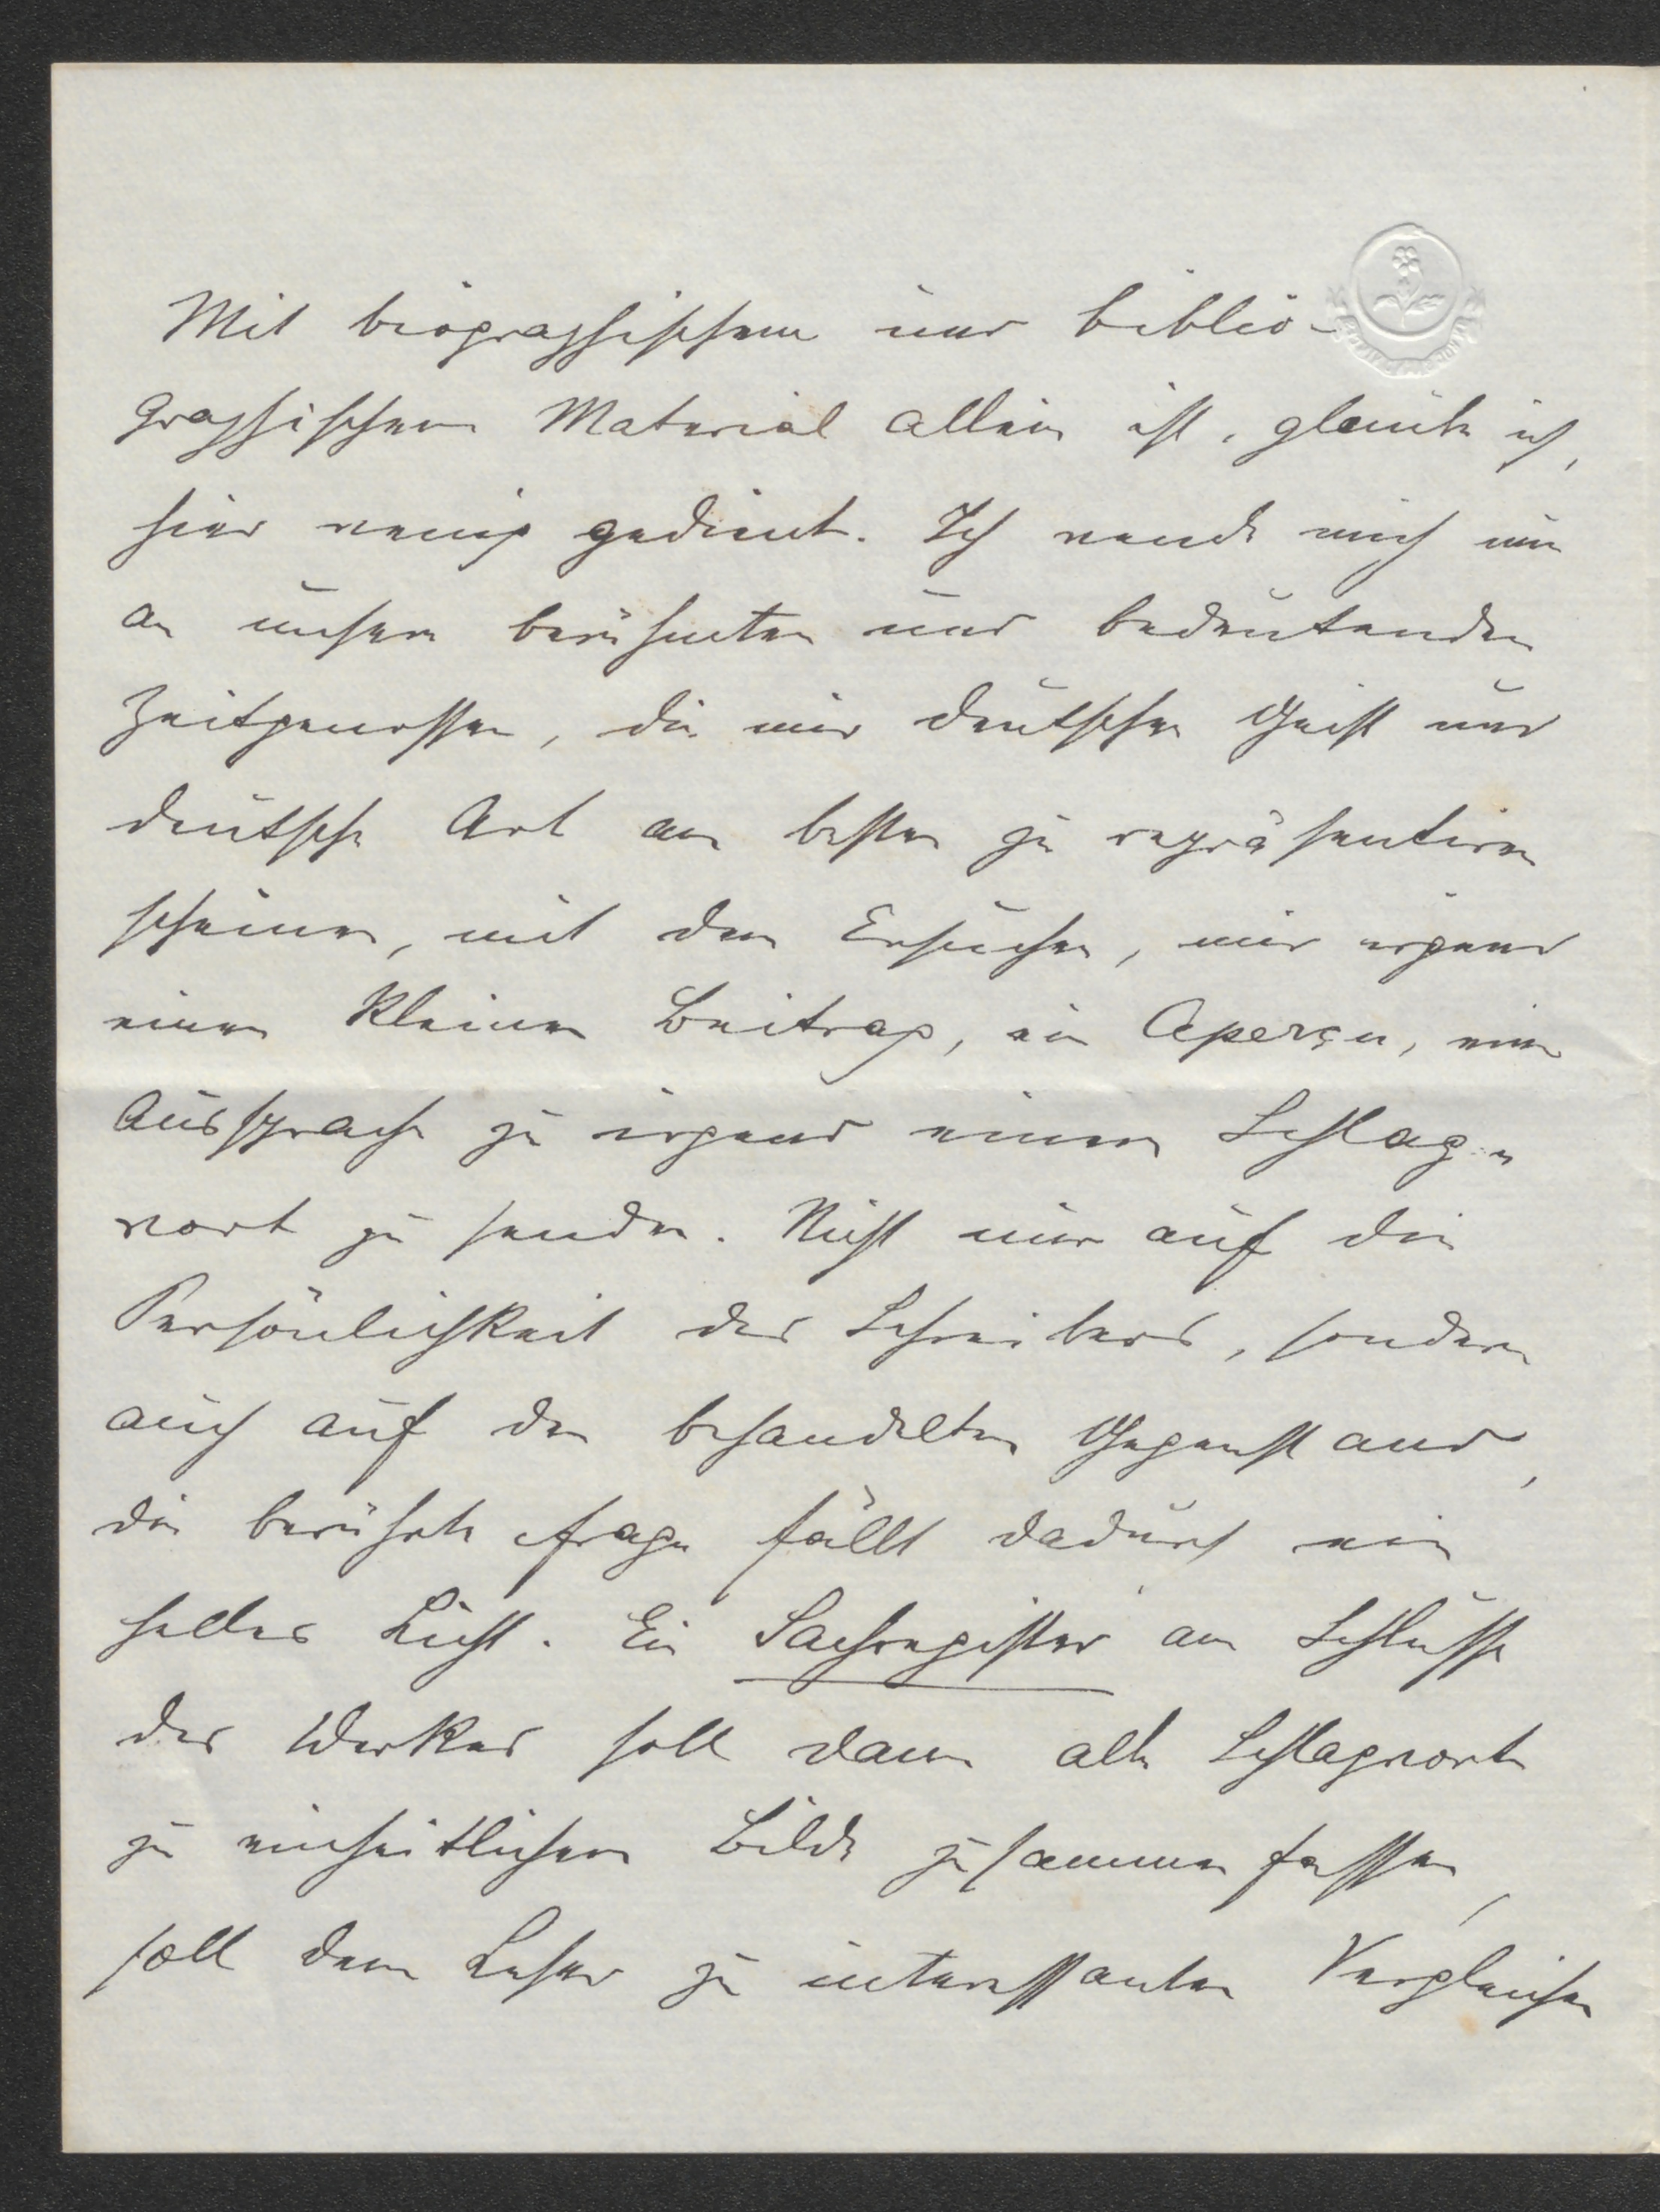 Mit biographischem und biblio-
graphischem Material allein ist, glaube ich,
hier wenig gedient. Ich wende mich nun
an unsere berühmten und bedeutenden
Zeitgenossen, die mir deutschen Geist und
deutsche Art am besten zu repräsentiren
scheinen, mit dem Ersuchen, mir irgend
einen kleinen Beitrag, ein Aperçu, eine
Aussprache zu irgend einem Schlag-
wort zu senden. Nicht nur auf die
Persönlichkeit des Schreibers, sondern
auch auf den behandelten Gegenstand,
die berührte Frage fällt dadurch ein
helles Licht. Ein Sachregister am Schlusse
des Werkes soll dann alle Schlagworte
zu einheitlichem Bilde zusammenfassen,
soll dem Leser zu interessanten Vergleichen